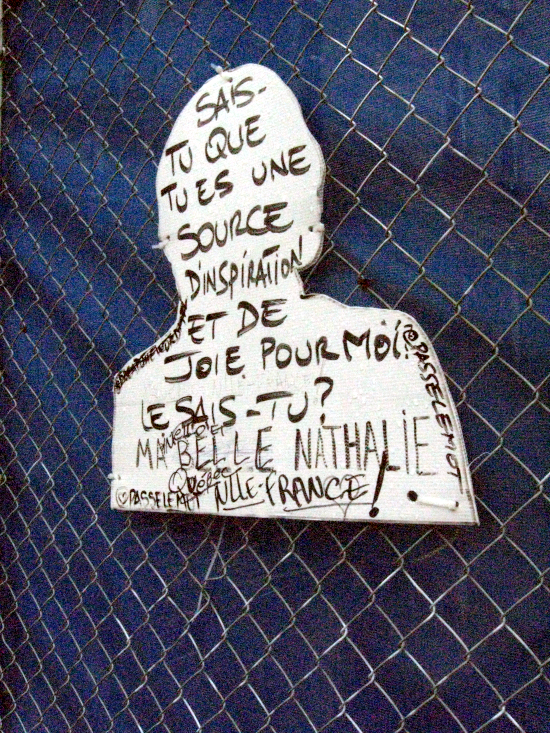 SAIS-
TU QUE
TU ES UNE
SOURCE
D'INSPIRATION
ET DE
JOIE POUR MOI.
LE SAIS-TU?
MA BELLE NATHALIE
Québec
NLLE-FRANCE!
@PASSELEMOT
@PASSELEMOT